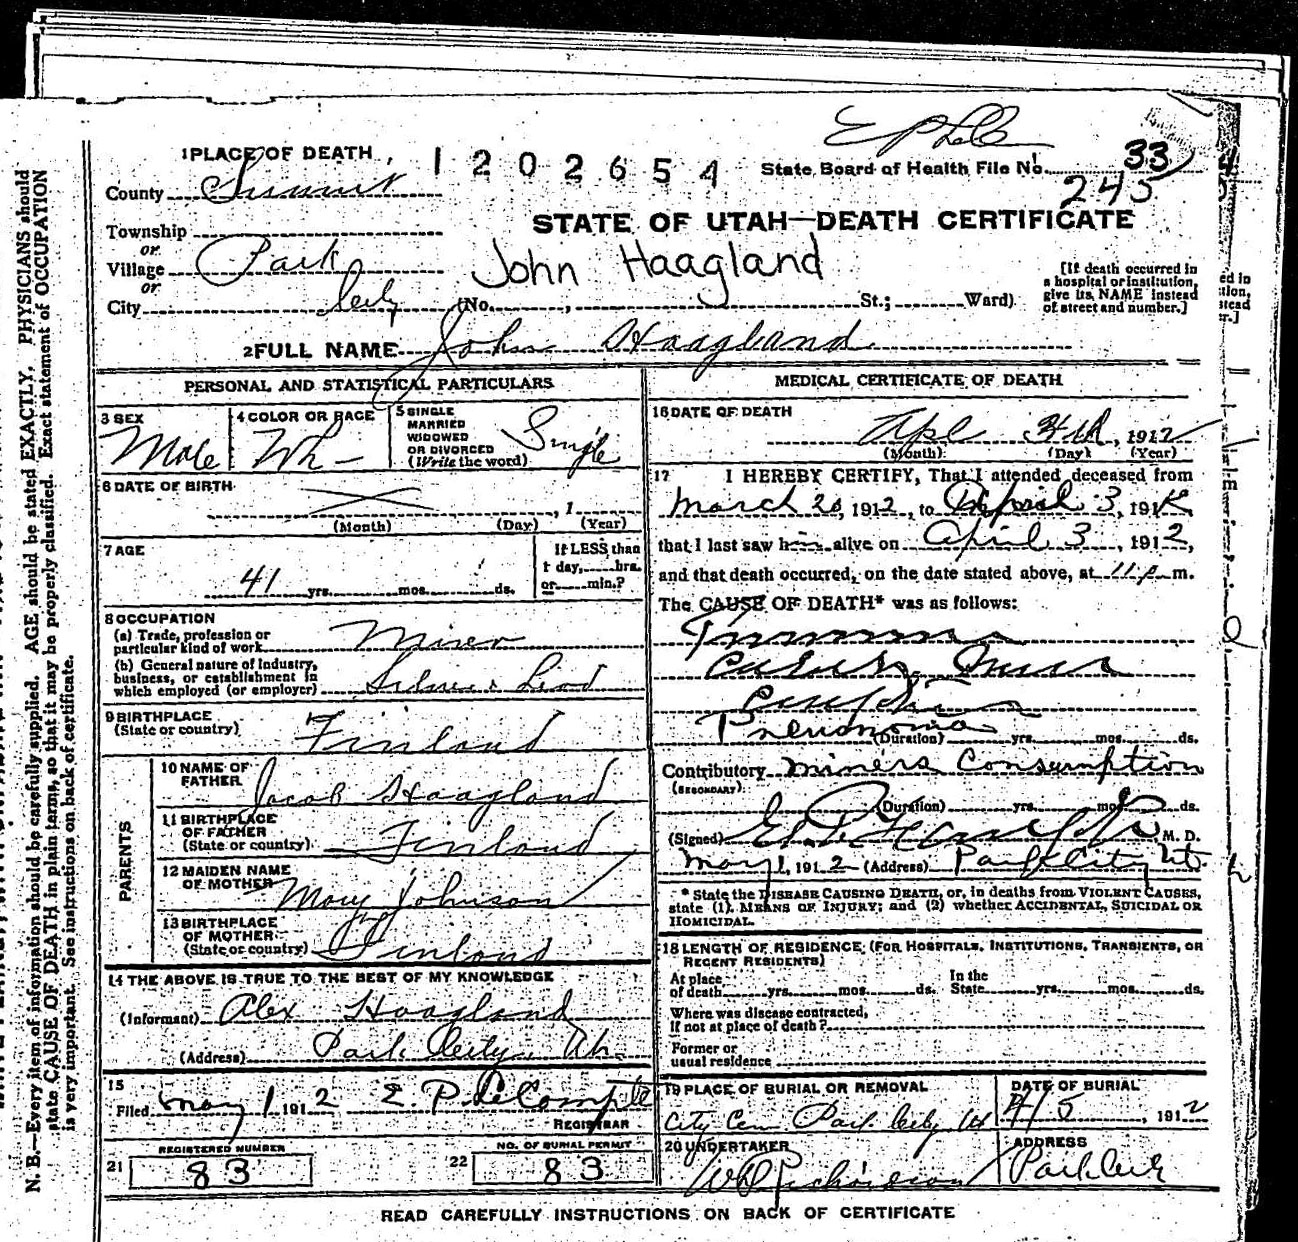 1 PLACE OF DEATH
1 2 0 2 6 5 4
State Board of Health File No. 33
245
County Summit
STATE OF UTAH—DEATH CERTIFICATE
Township
or
Village Park
or
City City (No. , St.; Ward)
John Haagland
[If death occurred in
a hospital or institution,
give its NAME instead
of street and number.]
2 FULL NAME John Haagland
PERSONAL AND STATISTICAL PARTICULARS
3 SEX
Male
4 COLOR OR RACE
Wh
5 SINGLE
MARRIED
WIDOWED
OR DIVORCED
(Write the word)
Single
6 DATE OF BIRTH
, 1
(Month) (Day) (Year)
7 AGE
41 yrs. mos. ds.
If LESS than
1 day, hrs.
or min.?
8 OCCUPATION
(a) Trade, profession or
particular kind of work Miner
(b) General nature of Industry,
business, or establishment in
which employed (or employer) Silver & Lead
9 BIRTHPLACE
(State or country) Finland
PARENTS
10 NAME OF
FATHER Jacob Haagland
11 BIRTHPLACE
OF FATHER
(State or country) Finland
12 MAIDEN NAME
OF MOTHER Mary Johnson
13 BIRTHPLACE
OF MOTHER
(State or country) Finland
14 THE ABOVE IS TRUE TO THE BEST OF MY KNOWLEDGE
(Informant) Alex Haagland
(Address) Park City Ut.
15
Filed May 1 1912 E. P. LeCompte
REGISTRAR
REGISTERED NUMBER
21 83
NO. OF BURIAL PERMIT
22 83
MEDICAL CERTIFICATE OF DEATH
16 DATE OF DEATH
Apl , 1912
(Month) (Day) (Year)
17 I HEREBY CERTIFY, That I attended deceased from
March 20, 1912, to April 3, 191
that I last saw him alive on April 3, 1912,
and that death occurred, on the date stated above, at 11 p m.
The CAUSE OF DEATH* was as follows:
Pneumonia
(Duration) yrs. mos. ds.
Contributory Miners Consumption
(SECONDARY)
(Duration) yrs. mos. ds.
(Signed) M. D.
May 1, 1912 (Address) Park City Ut.
* State the DISEASE CAUSING DEATH, or, in deaths from VIOLENT CAUSES,
state (1) MEANS OF INJURY; and (2) whether ACCIDENTAL, SUICIDAL OR
HOMICIDAL.
18 LENGTH OF RESIDENCE (FOR HOSPITALS, INSTITUTIONS, TRANSIENTS, OR
RECENT RESIDENTS)
At place
of death yrs. mos. ds.
In the
State yrs. mos. ds.
Where was disease contracted,
if not at place of death?
Former or
usual residence
19 PLACE OF BURIAL OR REMOVAL
City Cem Park City Ut
DATE OF BURIAL
4/5, 1912
20 UNDERTAKER
ADDRESS
Park City
READ CAREFULLY INSTRUCTIONS ON BACK OF CERTIFICATE
N. B.—Every item of information should be carefully supplied. AGE should be stated EXACTLY. PHYSICIANS should
state CAUSE OF DEATH in plain terms, so that it may be properly classified. Exact statement of OCCUPATION
is very important. See instructions on back of certificate.